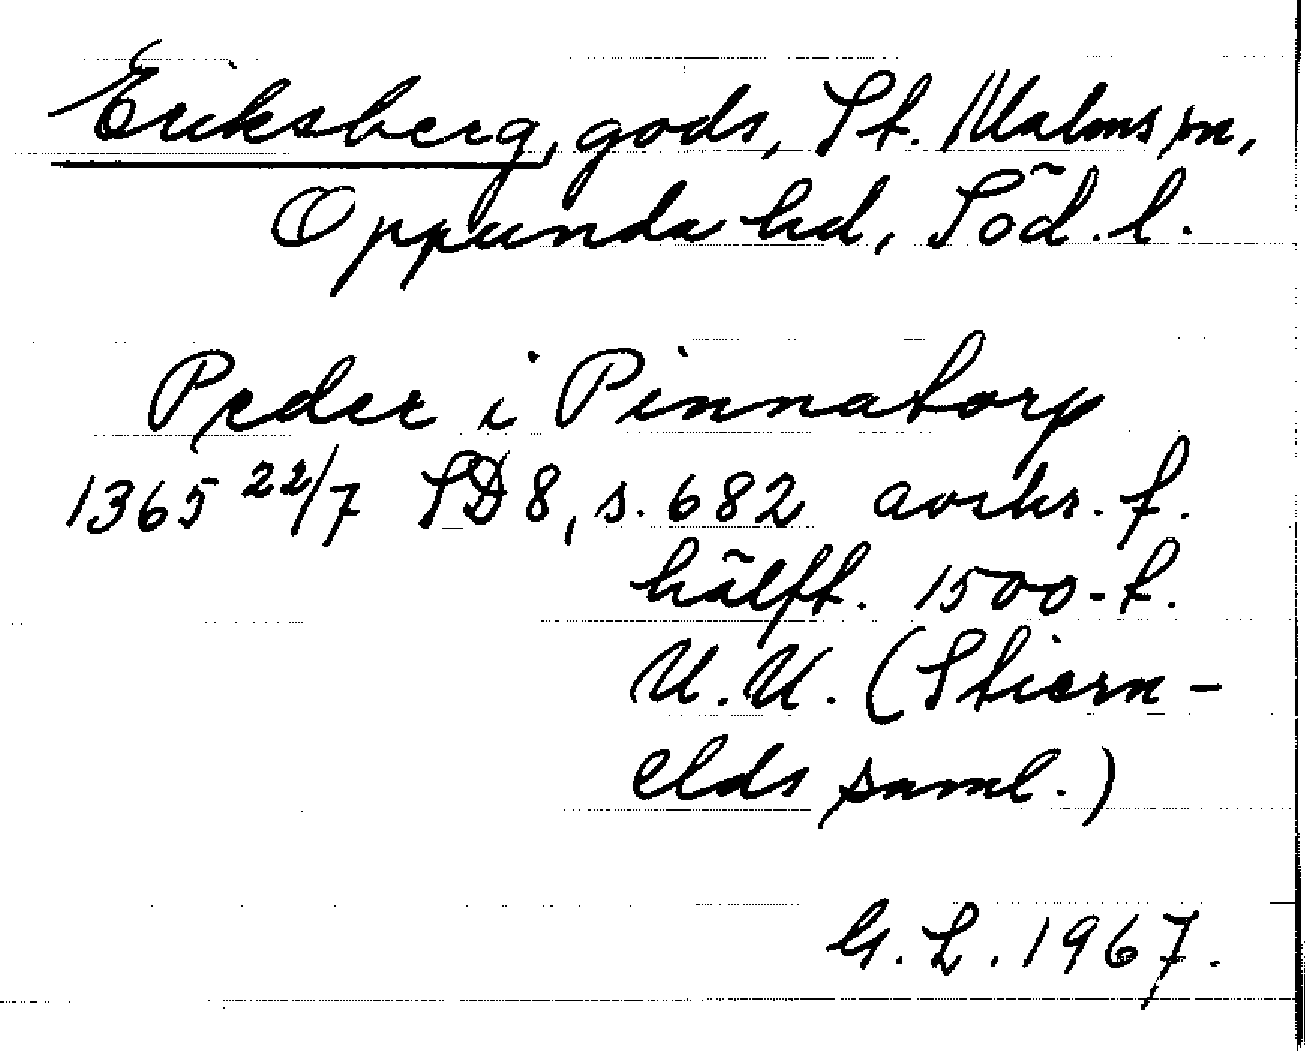 Eriksberg, gods, St. Malms sn,
Oppunda hd, Söd. l.
Peder i Pinnatorp
1365 22/7 SD 8, s. 682 avskr. f.
hälft. 1500-t.
U.U. (Stiern-
elds saml.)
G. L. 1967.